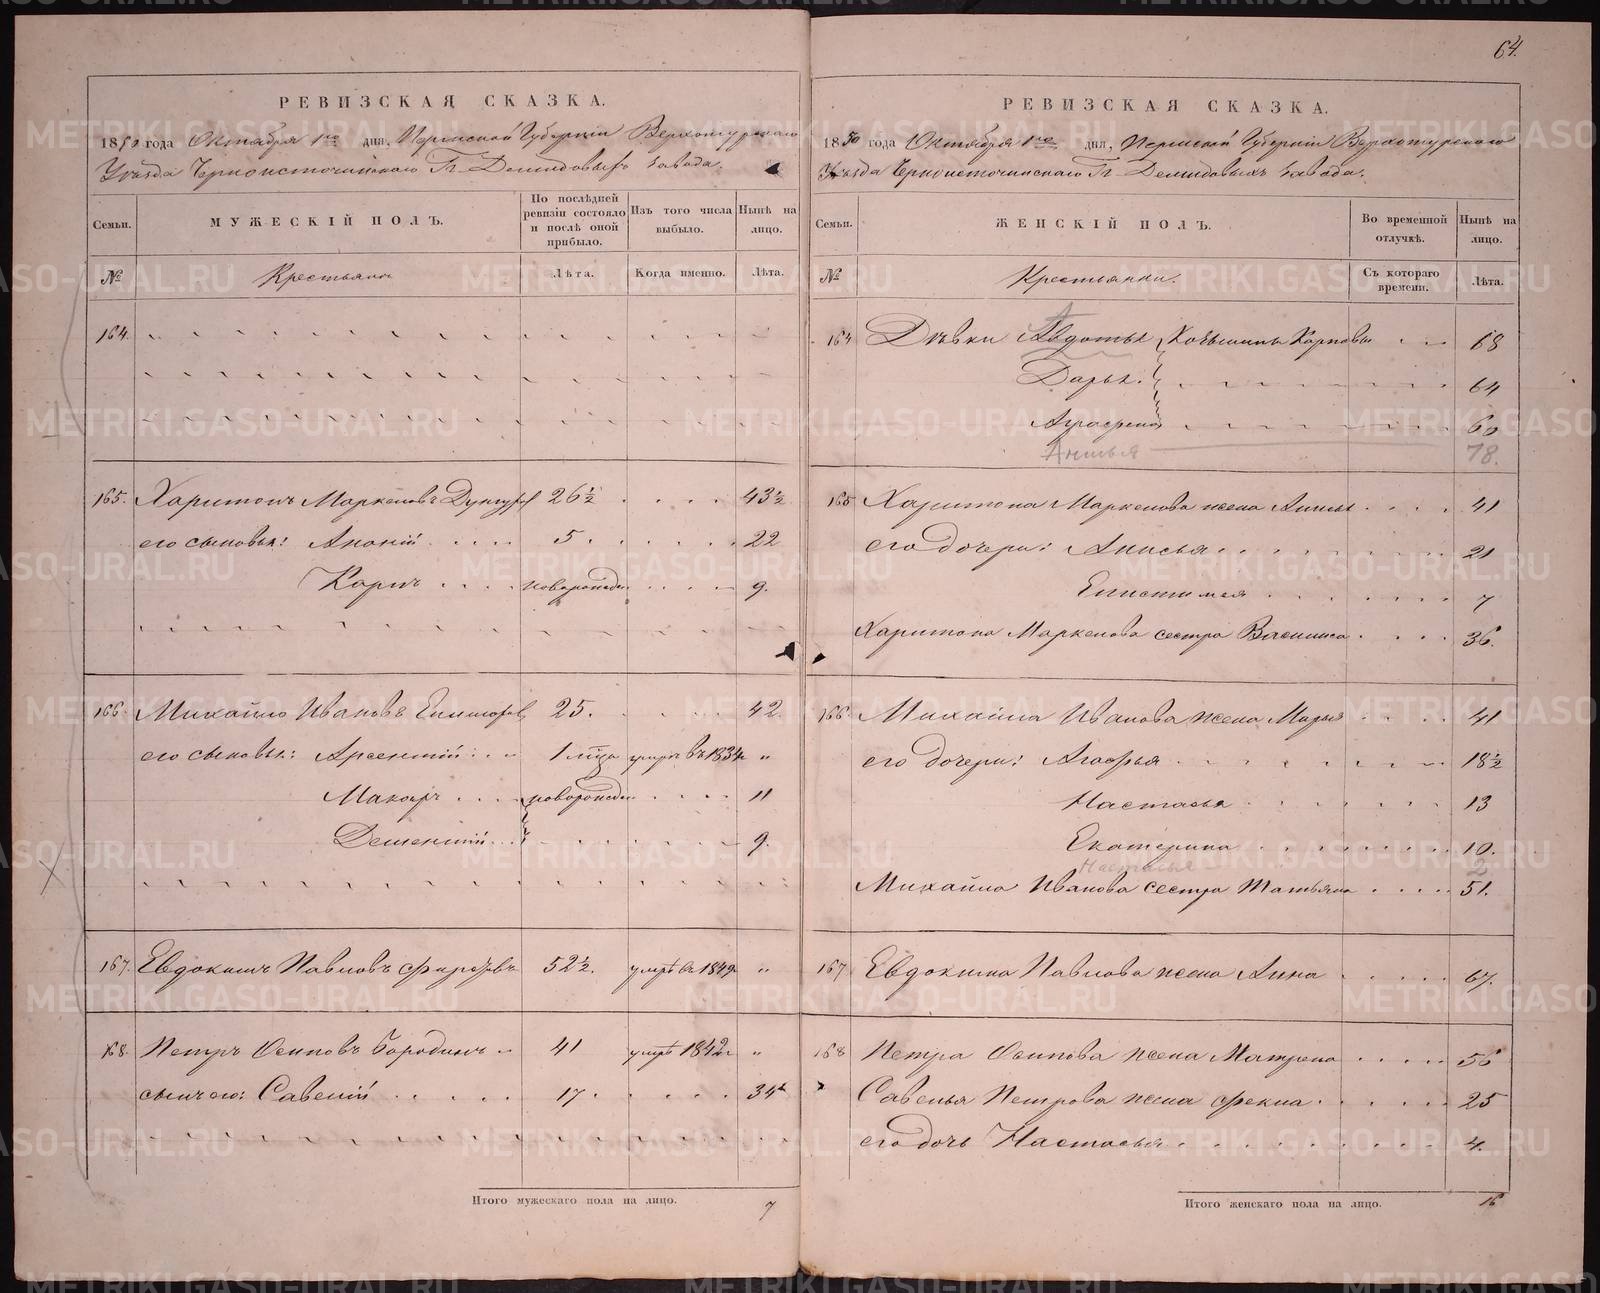 64.
РЕВИЗСКАЯ СКАЗКА.
1850 года Октября 1го дня, Пермской Губерніи Верхотурскаго
Уѣзда Черноисточинскаго Гг. Демидовыхъ завода.
Семьи.
МУЖЕСКІЙ ПОЛЪ.
По послѣдней ревизіи состояло и послѣ оной прибыло.
Изъ того числа выбыло.
Нынѣ на лицо.
№
Крестьяне
Лѣта.
Когда именно.
Лѣта.
164.
165. Харитонъ Маркеловъ 26½ 43½
его сыновья: Ананій 5. 22
Карпъ новорожден. 9.
166. Михайло Ивановъ 25. 42.
его сыновья: Арсентій 1 мѣс. умеръ въ 1834 "
Макаръ новорожден. 11
Дементій 9.
167. Евдокимъ Павловъ 52½. умеръ въ 1849 "
168. Петръ Осиповъ Бородинъ 41 умеръ 1842 "
сынъ его: Савелій 17. 34
Итого мужескаго пола на лицо. 7
РЕВИЗСКАЯ СКАЗКА.
1850 года Октября 1го дня, Пермской Губерніи Верхотурскаго
Уѣзда Черноисточинскаго Гг. Демидовыхъ завода.
Семьи.
ЖЕНСКІЙ ПОЛЪ.
Во временной отлучкѣ.
Нынѣ на лицо.
№
Крестьянки.
Съ котораго времени.
Лѣта.
164 Дѣвки Авдотья Карповы 68
Дарья. 64
Аграфена 60
78.
165 Харитона Маркелова жена Анисья 41
его дочери: Анисья 21
Епистимея 7
Харитона Маркелова сестра Василиса 36.
166. Михайла Иванова жена Марья 41
его дочери: Агафья 18½
Настасья 13
Екатерина 10.
Настасья 2
Михайла Иванова сестра Татьяна 51.
167 Евдокима Павлова жена Анна 67.
168 Петра Осипова жена Матрена 56
Савелья Петрова жена Фекла 25
его дочь Настасья 4.
Итого женскаго пола на лицо. 16
METRIKI.GASO-URAL.RU